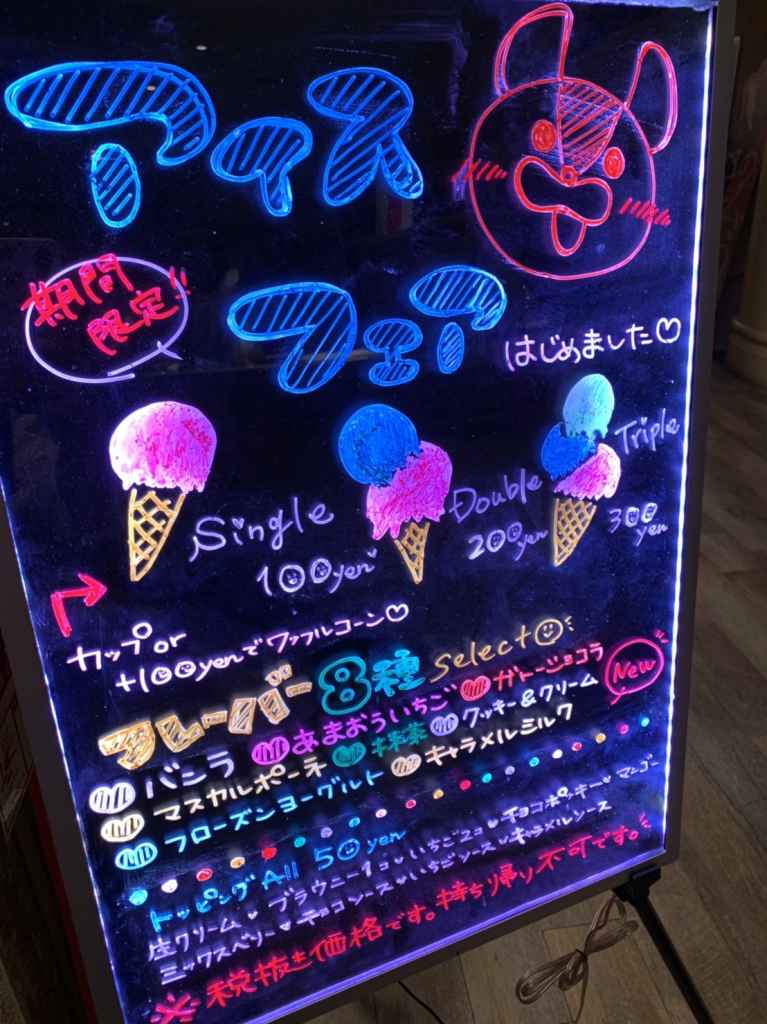 アイス
期間
限定!!
フェア
はじめました♡
Single
100yen
Double
200yen
Triple
300
yen
カップor
+100yenでワッフルコーン♡
フレーバー8種 select
バニラ あまおういちご ガトーショコラ New
マスカルポーネ 抹茶 クッキー&クリーム
フローズンヨーグルト キャラメルミルク
トッピングAll 50yen
生クリーム ♥ ブラウニー1コ ♥ いちご2コ ♥ チョコポッキー ♥ マンゴー
ミックスベリー ♥ チョコソース ♥ いちごソース ♥ キャラメルソース
※税抜き価格です。持ち帰り不可です。